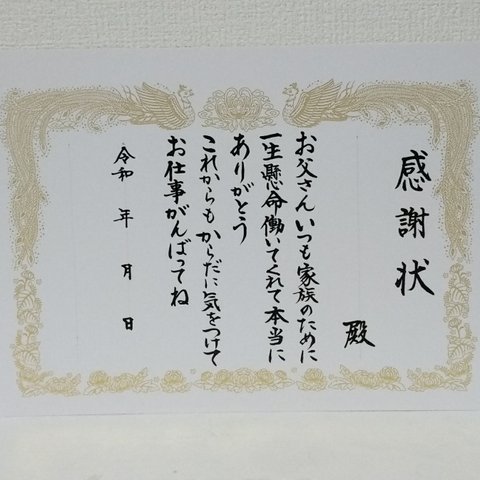 感謝状
殿
お父さんいつも家族のために
一生懸命働いてくれて本当に
ありがとう
これからもからだに気をつけて
お仕事がんばってね
令和 年 月 日